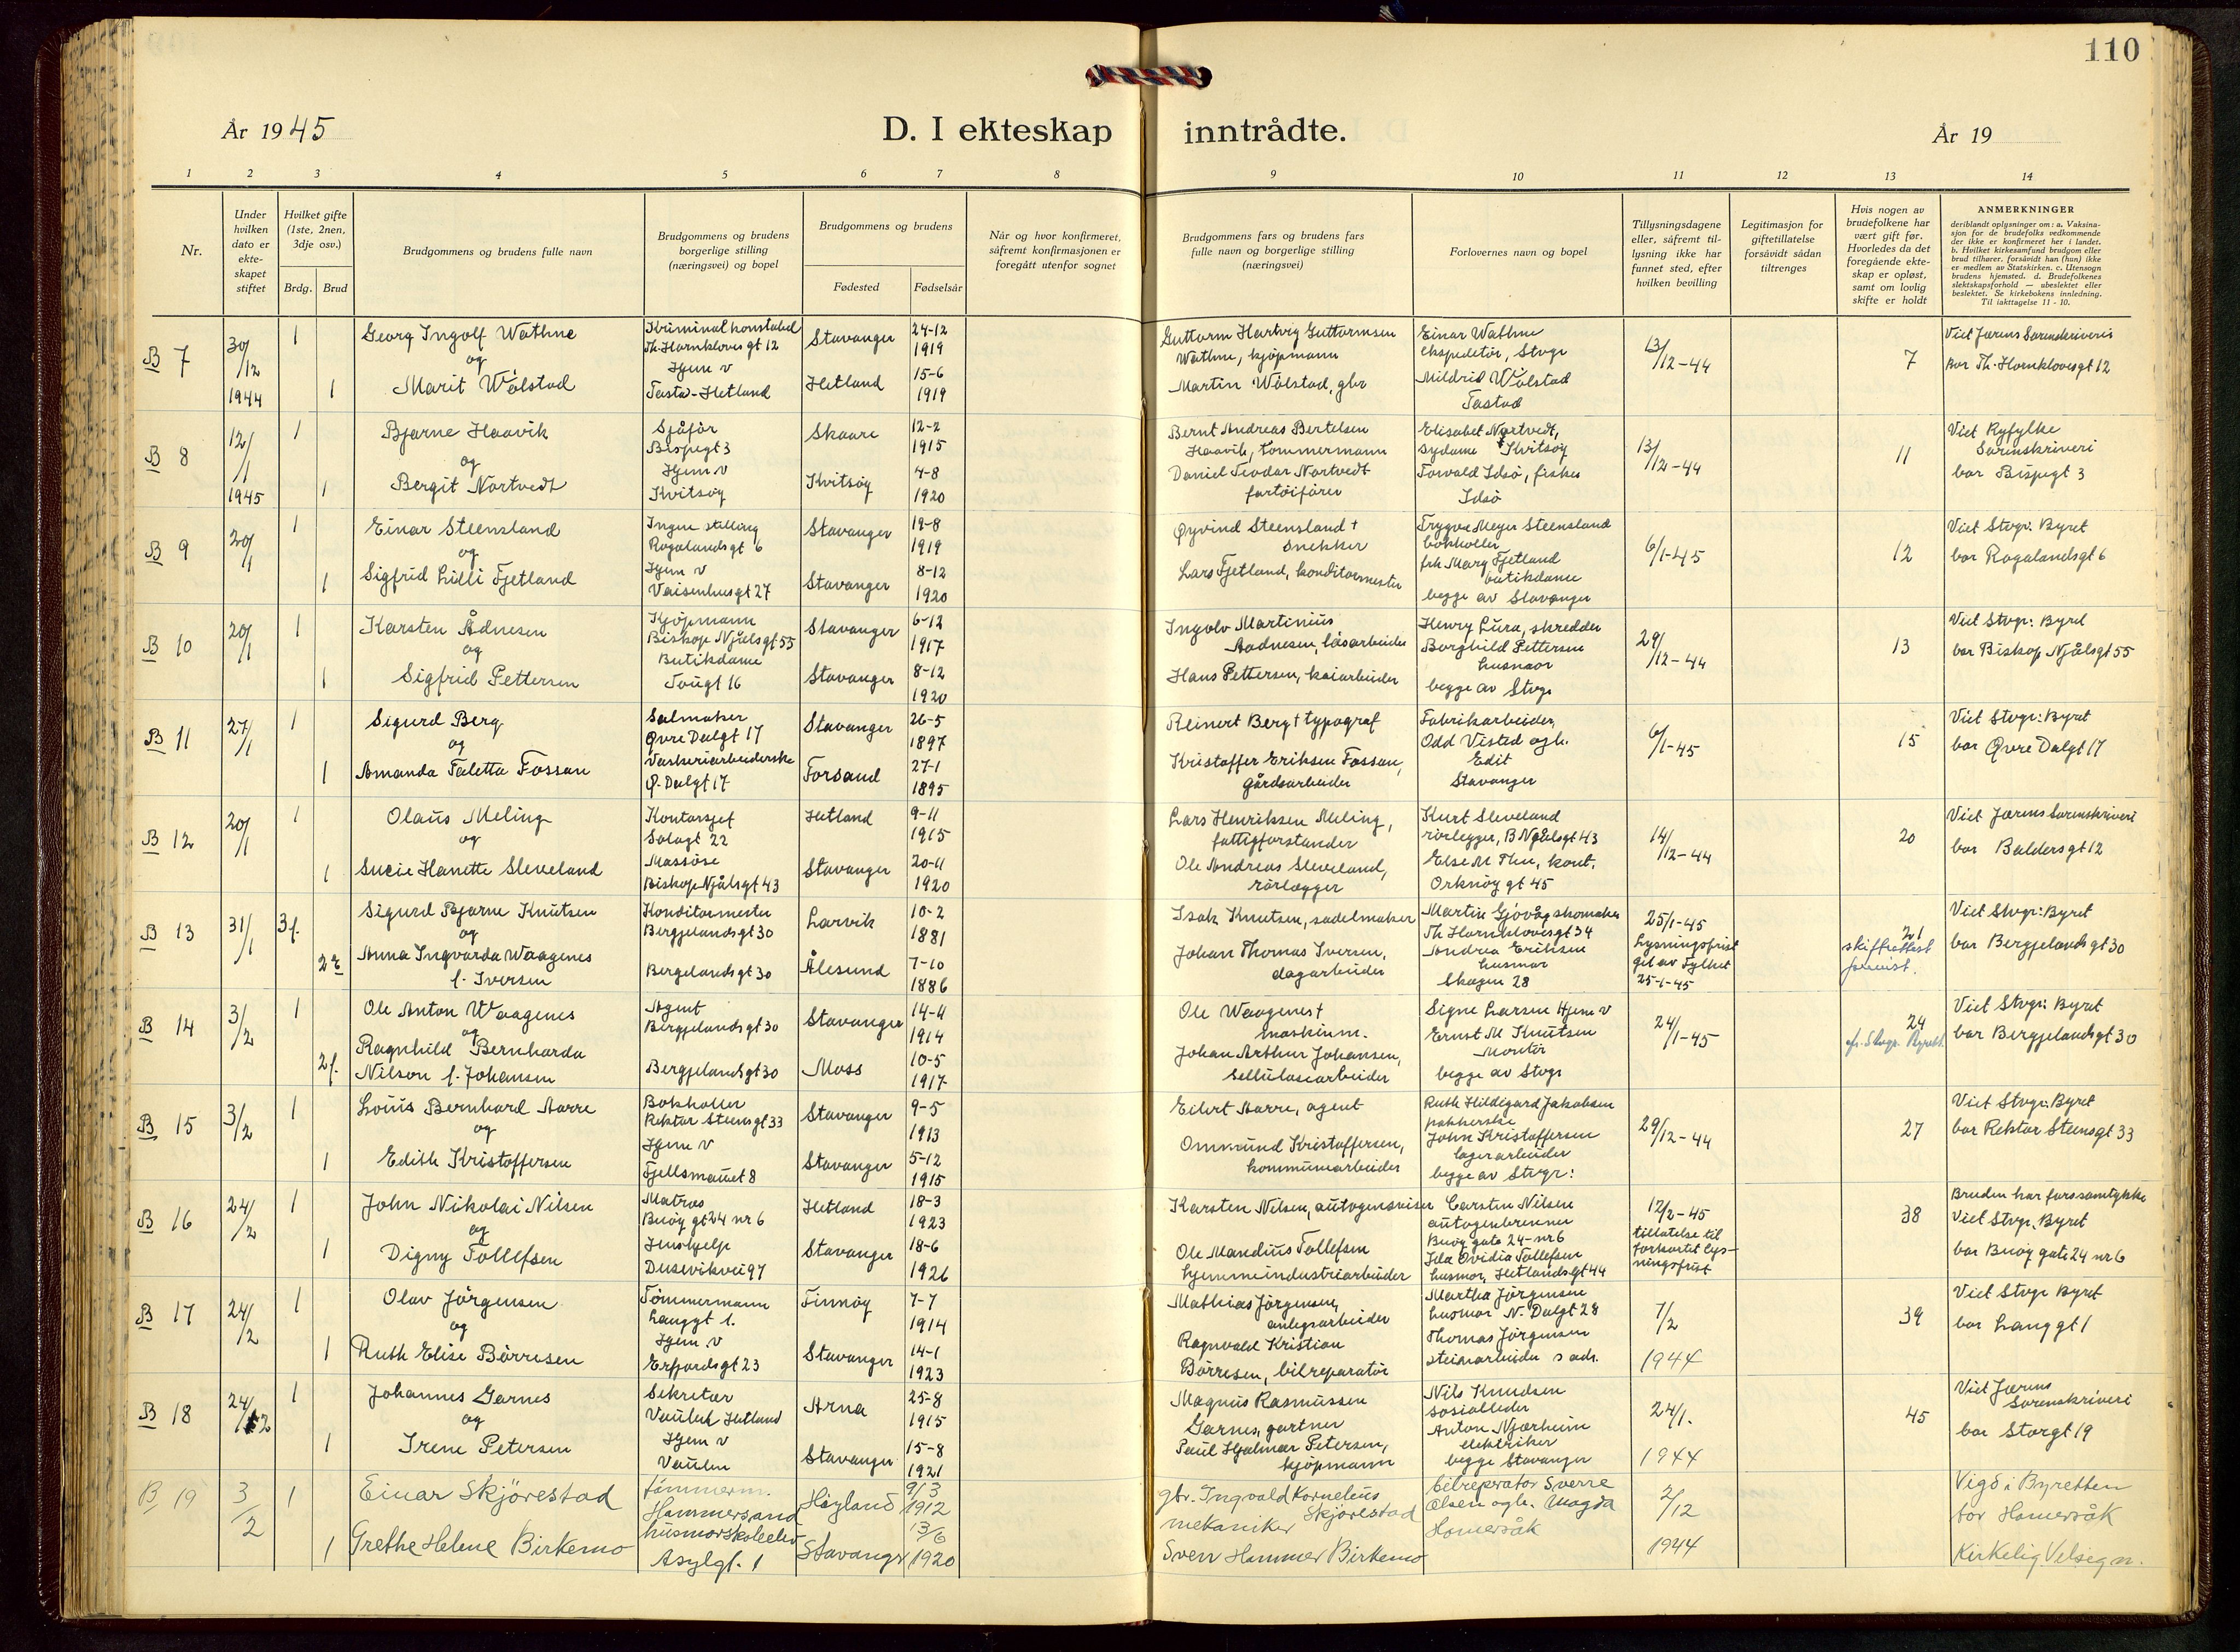 110
År 1945
D. I ekteskap inntrådte.
År 19
1 2 3 4 5 6 7 8 9 10 11 12 13 14
Nr.
Under hvilken dato er ekte- skapet stiftet
Hvilket gifte (1ste, 2nen, 3dje osv.)
Brdg. Brud
Brudgommens og brudens fulle navn
Brudgommens og brudens borgerlige stilling (næringsvei) og bopel
Brudgommens og brudens
Fødested Fødselsår
Når og hvor konfirmeret, såfremt konfirmasjonen er foregått utenfor sognet
Brudgommens fars og brudens fars fulle navn og borgerlige stilling (næringsvei)
Forlovernes navn og bopel
Tillysningsdagene eller, såfremt til- lysning ikke har funnet sted, efter hvilken bevilling
Legitimasjon for giftetillatelse forsåvidt sådan tiltrenges
Hvis nogen av brudefolkene har vært gift før. Hvorledes da det foregående ekte- skap er opløst, samt om lovlig skifte er holdt
ANMERKNINGER
deriblandt oplysninger om: a. Vaksina- sjon for de brudefolks vedkommende der ikke er konfirmeret her i landet. b. Hvilket kirkesamfund brudgom eller brud tilhører, forsåvidt han (hun) ikke er medlem av Statskirken. c. Utensogn brudens hjemsted. d. Brudefolkenes slektskapsforhold — ubeslektet eller beslektet. Se kirkebokens innledning. Til iakttagelse 11 - 10.
B 7
30/12 1944
1
Georg Ingolf Wathne
og
1 Marit Wölstad
Kriminalkonstabel
Th. Hornkloves gt 12
Hjem v
Tasta-Hetland
Stavanger 24-12 1919
Hetland 15-6 1919
Guttorm Hartvig Guttormsen
Wathne, kjöpmann
Martin Wölstad, gbr
Einar Wathne
ekspeditör, Stvgr
Mildrid Wölstad
Tastad
13/12-44
7
Viet Jærens Sorenskriveris
Bor Th. Hornklovesgt 12
B 8
12/1 1945
1
Bjarne Haavik
og
1 Bergit Nortvedt
Sjåför
Bispegt 3
Hjem v
Kvitsöy
Skaare 12-2 1915
Kvitsöy 4-8 1920
Bernt Andreas Bertelsen
Haavik, tömmermann
Daniel Teodor Nortvedt
fartöiförer
Elisabet Nortvedt,
sydame Kvitsöy
Torvald Idsö, fisker
Idsö
13/12-44
11
Viet Ryfylke
Sorenskriveri
bor Bispegt 3
B 9
20/1
1
Einar Steensland
og
1 Sigfrid Lilli Fjetland
Ingen stilling
Rogalandsgt 6
Hjem v
Vaisenhusgt 27
Stavanger 19-8 1919
Stavanger 8-12 1920
Øyvind Steensland †
snekker
Lars Fjetland, konditormester
Trygve Meyer Steensland
bokholder
frk Mary Fjetland
butikdame
begge av Stavanger
6/1-45
12
Viet Stvgr. Byret
bor Rogalandsgt 6
B 10
20/1
1
Karsten Ådnesen
og
1 Sigfrid Pettersen
Kjöpmann
Biskop Njålsgt 55
Butikdame
Tougt 16
Stavanger 6-12 1917
Stavanger 8-12 1920
Ingolv Martinius
Aadnesen, låsarbeider
Hans Pettersen, kaiarbeider
Henry Lura, skredder
Borghild Pettersen
husmor
begge av Stvgr
29/12-44
13
Viet Stvgr: Byret
bor Biskop Njålsgt 55
B 11
27/1
1
Sigurd Berg
og
1 Amanda Taletta Fossan
Salmaker
Øvre Dalgt 17
Vaskeriarbeiderske
Ø. Dalgt 17
Stavanger 26-5 1897
Forsand 27-1 1895
Reinert Berg † typograf
Kristoffer Eriksen Fossan,
gårdsarbeider
Fabrikarbeider,
Odd Visted og h.
Edit
Stavanger
6/1-45
15
Viet Stvgr: Byret
bor Øvre Dalgt 17
B 12
20/1
1
Olaus Meling
og
1 Lucie Hanette Sleveland
Kontorsjef
Solagt 22
Massöse
Biskop Njålsgt 43
Hetland 9-11 1915
Stavanger 20-11 1920
Lars Henriksen Meling,
fattigforstander
Ole Andreas Sleveland,
rörlegger
Kurt Sleveland
rörlegger, B Njålsgt 43
Else M Thu, kont.
Orknöy gt 45
14/12-44
20
Viet Jærens Sorenskriveri
bor Baldersgt 12
B 13
31/1
3f.
Sigurd Bjarne Knutsen
og
2g Anna Ingvarda Waagenes
f. Iversen
Konditormester
Bergjelandsgt 30
Bergelandsgt 30
Larvik 10-2 1881
Ålesund 7-10 1886
Isak Knutsen, sadelmaker
Johan Thomas Iversen,
dagarbeider
Martin Gjövåg skomaker
Th Hornklovesgt 34
Andrea Eriksen
husmor
Skagen 28
25/1-45
Lysningsfrist
git av Fylket
25-1-45
21
skifteattest
forevist.
Viet Stvgr: Byret
bor Bergjelandsgt 30
B 14
3/2
1
Ole Anton Waagenes
og
2f. Ragnhild Bernharda
Nilson f. Johansen
Agent
Bergjelandsgt 30
Bergjelandsgt 30
Stavanger 14-4 1914
Moss 10-5 1917
Ole Waagenes †
maskinm.
Johan Arthur Johansen,
Sellulosearbeider
Signe Larsen Hjem v
Ernst M Knutsen
Montör
begge av Stvgr
24/1-45
24
Viet Stvgr: Byret
bor Bergjelandsgt 30
B 15
3/2
1
Louis Bernhard Aarre
og
1 Edith Kristoffersen
Bokholler
Rektor Steensgt 33
Hjem v
Fjellsmauet 8
Stavanger 9-5 1913
Stavanger 5-12 1915
Eilert Aarre, agent
Ommund Kristoffersen,
kommunearbeider
Ruth Hildegard Jakobsen
pakkerske
John Kristoffersen
lagerarbeider
begge av Stvgr:
29/12-44
27
Viet Stvgr: Byret
bor Rektor Steensgt 33
B 16
24/2
1
John Nikolai Nilsen
og
1 Digny Tollefsen
Matros
Buöy gt 24 nr 6
Hushjelp
Dusevikvei 97
Hetland 18-3 1923
Stavanger 18-6 1926
Karsten Nilsen, autogensveiser
Ole Mandius Tollefsen
hjemmeindustriarbeider
Carsten Nilsen
autogenbrenner
Buöy gate 24-nr 6
Ida Ovidia Tollefsen
husmor, Hetlandsgt 44
12/2-45
tillatelse til
forkortet lys-
ningsfrist
38
Bruden har fars samtykke
Viet Stvgr. Byret
bor Buöy gate 24 nr 6
B 17
24/2
1
Olav Jörgensen
og
1 Ruth Elise Börresen
Tömmermann
Langgt 1.
Hjem v
Erfjordsgt 23
Finnöy 7-7 1914
Stavanger 14-1 1923
Mathias Jörgensen,
anlegsarbeider
Ragnvald Kristian
Börresen, bilreparatör
Martha Jörgensen
husmor N. Dalgt 28
Thomas Jörgensen
steinarbeider s adr.
7/2
1944
39
Viet Stvgr Byret
bor Langgt 1
B 18
24/2
1
Johannes Garnes
og
1 Irene Petersen
Sekretær
Vaulen Hetland
Hjem v
Vaulen
Arna 25-8 1915
Stavanger 15-8 1921
Magnus Rasmussen
Garnes, gartner
Paul Hjalmar Petersen,
kjöpmann
Nils Knudsen
sosialleder
Anton Njærheim
elektriker
begge Stavanger
24/1.
1944
45
Viet Jærens
Sorenskriveri
bor Storgt 19
B 19
3/2
1
Einar Skjörestad
1 Grethe Helene Birkemo
tömmerm.
Hommersand
husmorskoleelev
Asylgt. 1
Höyland 9/3 1912
Stavanger 13/6 1920
gbr. Ingvald Kornelius
Skjörestad
mekaniker
Sven Hammer Birkemo
bilreparatör Sverre
Olsen og h. Magda
Homersåk
2/12
1944
Vigd i Byretten
bor Homersåk
Kirkelig Velsegn.